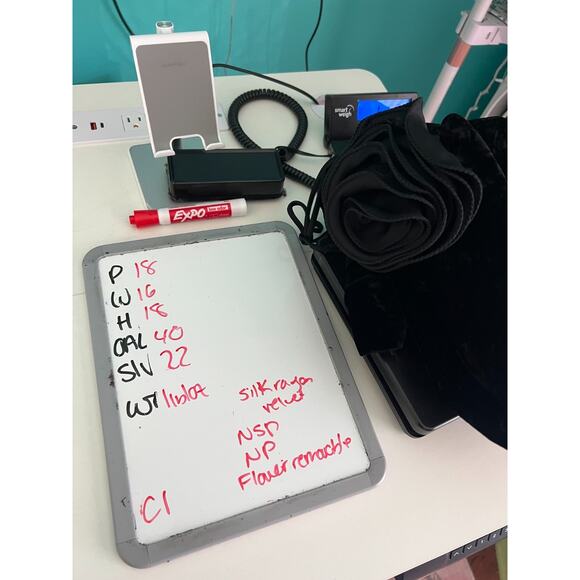 smart weigh
EXPO
P 18
W 16
H 18
OAL 40
Slv 22
WT 1lb10z
silk rayon
velvet
NSD
NP
Flower removable
C1